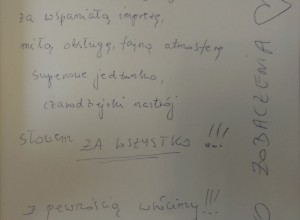 za wspaniałą imprezę,
miłą obsługę, fajną atmosferę
Superowe jedzonko,
czarodziejski nastrój
słowem ZA WSZYSTKO!!!
z pewnością wrócimy!!!
O ZOBACZENIA